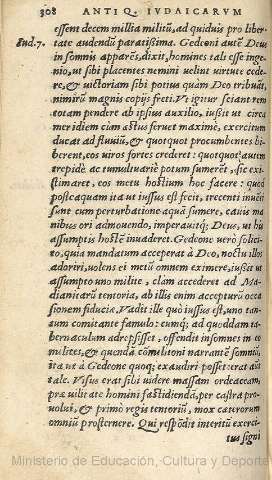 308 ANTIQ. IVDAICARVM
essent decem millia militũ, ad quiduis pro liber-
Iud.7. tate audendũ paratissima. Gedeoni autẽ Deus
in somnis apparẽs, dixit, homines tali esse inge-
nio, ut sibi placentes nemini uelint uirtute cede-
re, & uictoriam sibi potius quàm Deo tribuãt,
nimirũ magnis copijs freti. Vt igitur sciant rem
totam pendere ab ipsius auxilio, iußit ut circa
meridiem cùm æstus feruet maximè, exercitum
ducat ad fluuiũ, & quotquot procumbentes bi-
berent, eos uiros fortes crederet: quotquot autem
trepidè ac tumultuariè potum sumerẽt, sic exi-
stimaret, eos metu hostium hoc facere: quod
postea quam ita ut iussus est fecit, trecenti inuẽti
sunt cum perturbatione aquã sumere, cauis ma
nibus ori admouendo, imperauitq; Deus, ut his
assumptis hostẽ inuaderet. Gedeone uerò solici-
to, quia mandatum acceperat à Deo, noctu illos
adoriri, uolens ei metũ omnem eximere, iußit ut
assumpto uno milite, clam accederet ad Ma-
dianitarũ tentoria, ab illis enim accepturũ occa
sionem fiduciæ. Vadit ille quò iussus est, uno tan-
tum comitante famulo: cumq; ad quoddam ta-
bernaculum adrepsisset, offendit insomnes in eo
milites, & quendã cõmilitoni narrantẽ somniũ,
ita ut à Gedeone quoq; exaudiri posset: erat autẽ
tale. Visus erat sibi uidere massam ordeaceam,
præ uilitate homini fastidiendã, per castra pro-
uolui, & primò regis tentoriũ, mox cæterorum
omniũ prosternere. Qui respõdit interitũ exerci-
tus signi
Ministerio de Educación, Cultura y Deporte